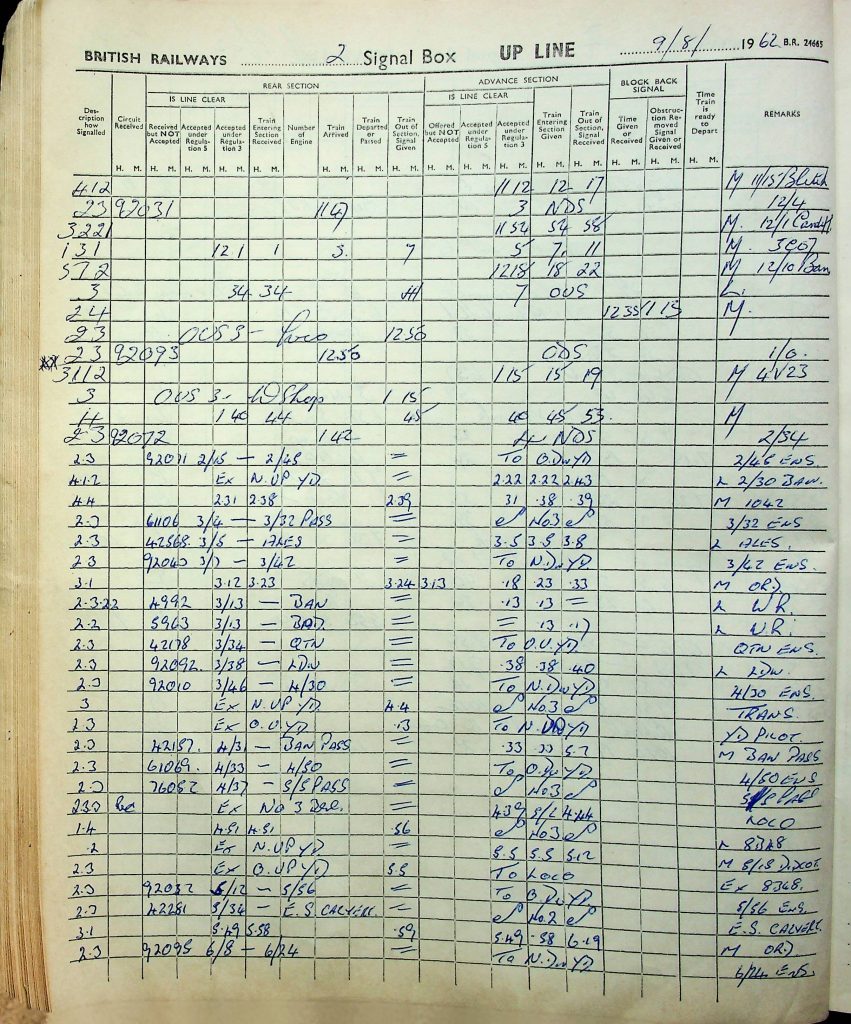 BRITISH RAILWAYS 2 Signal Box UP LINE 9/8/ 1962 B.R. 24665
REAR SECTION ADVANCE SECTION BLOCK BACK SIGNAL
IS LINE CLEAR IS LINE CLEAR
Description how Signalled Circuit Received Received but NOT Accepted Accepted under Regulation 5 Accepted under Regulation 3 Train Entering Section Received Number of Engine Train Arrived Train Departed or Passed Train Out of Section, Signal Given Offered but NOT Accepted Accepted under Regulation 5 Accepted under Regulation 3 Train Entering Section Given Train Out of Section, Signal Received Time Given or Received Obstruction Removed Signal Given or Received Time Train is ready to Depart REMARKS
H. M. H. M. H. M. H. M. H. M. H. M. H. M. H. M. H. M. H. M. H. M. H. M. H. M. H. M. H. M. H. M.
412 11 12 12 17 M 11/15
23 92031 1147 3 NDS 12/4
3221 1154 54 58 M. 12/1 Cardiff
131 12 1 1 3. 7 5 7. 11 M.
572 1218 18 22 M 12/10 Ban
3 34 34 7 OUS L.
24 12 35 1 15 M.
23 OUS 3 - Loco 1250
23 92093 1250 ODS 1/0.
3112 1 15 15 19 M 4V23
3 OUS 3 - W Shop 1 15
14 1 40 44 45 40 45 53. M
23 92072 1 42 4 NDS 2/34
2.3 92071 2/15 — 2/45 = To O.Dn YD 2/45 ENS.
4.1.2 Ex N. UP YD = 2.22 2.22 2.43 L 2/30 BAN.
4.4 2.31 2.38 2.39 31 .38 .39 M 1042
2.3 61106 3/4 — 3/32 PASS = No3 3/32 ENS
2.3 42568 3/5 — ALES = 3.5 3.5 3.8 L ALES.
2.3 92040 3/7 — 3/42 = To N.Dn YD 3/42 ENS.
3.1 3.12 3.23 3.24 3.13 .18 .23 .33 M ORD
2.3.22 4992 3/13 — BAN = .13 .13 = L W.R.
2.2 5963 3/13 — BAD. = = 13 .17 L W.R.
2.3 42178 3/34 — QTN = To O.U.YD QTN ENS.
2.3 92092. 3/38 — LDN = .38 .38 .40 L LDN.
2.3 92010 3/46 — 4/30 = To N.Dn YD 4/30 ENS.
3 Ex N. UP YD 4.4 No 3 TRANS.
2.3 Ex O.U.YD .13 To N. YD YD PILOT.
2.3 42157. 4/31 — BAN PASS = .33 .33 5.2 M BAN PASS
2.3 61069. 4/33 — 4/50 = To O.Dn YD 4/50 ENS
2.3 76052 4/37 — 5/5 PASS = No 3 5/5 PASS
Ex No 3 4.39 4.44 LOCO
1.4 4.51 4.51 .56 No 3
.2 Ex N. UP YD 5.5 5.5 5.12 L 8348
2.3 Ex O. UP YD 5.5 To LOCO M 5/15
2.3 92032 5/12 — 5/56 = To O.Dn YD Ex 8348.
2.3 42281 5/34 — E.S. CALVERT. = No.2 5/56 ENS.
3.1 5.49 5.58 .59 5.49 .58 6.19 E.S. CALVERT.
2.3 92095 6/8 — 6/24 = To N.Dn YD M ORD
6/24 ENS.